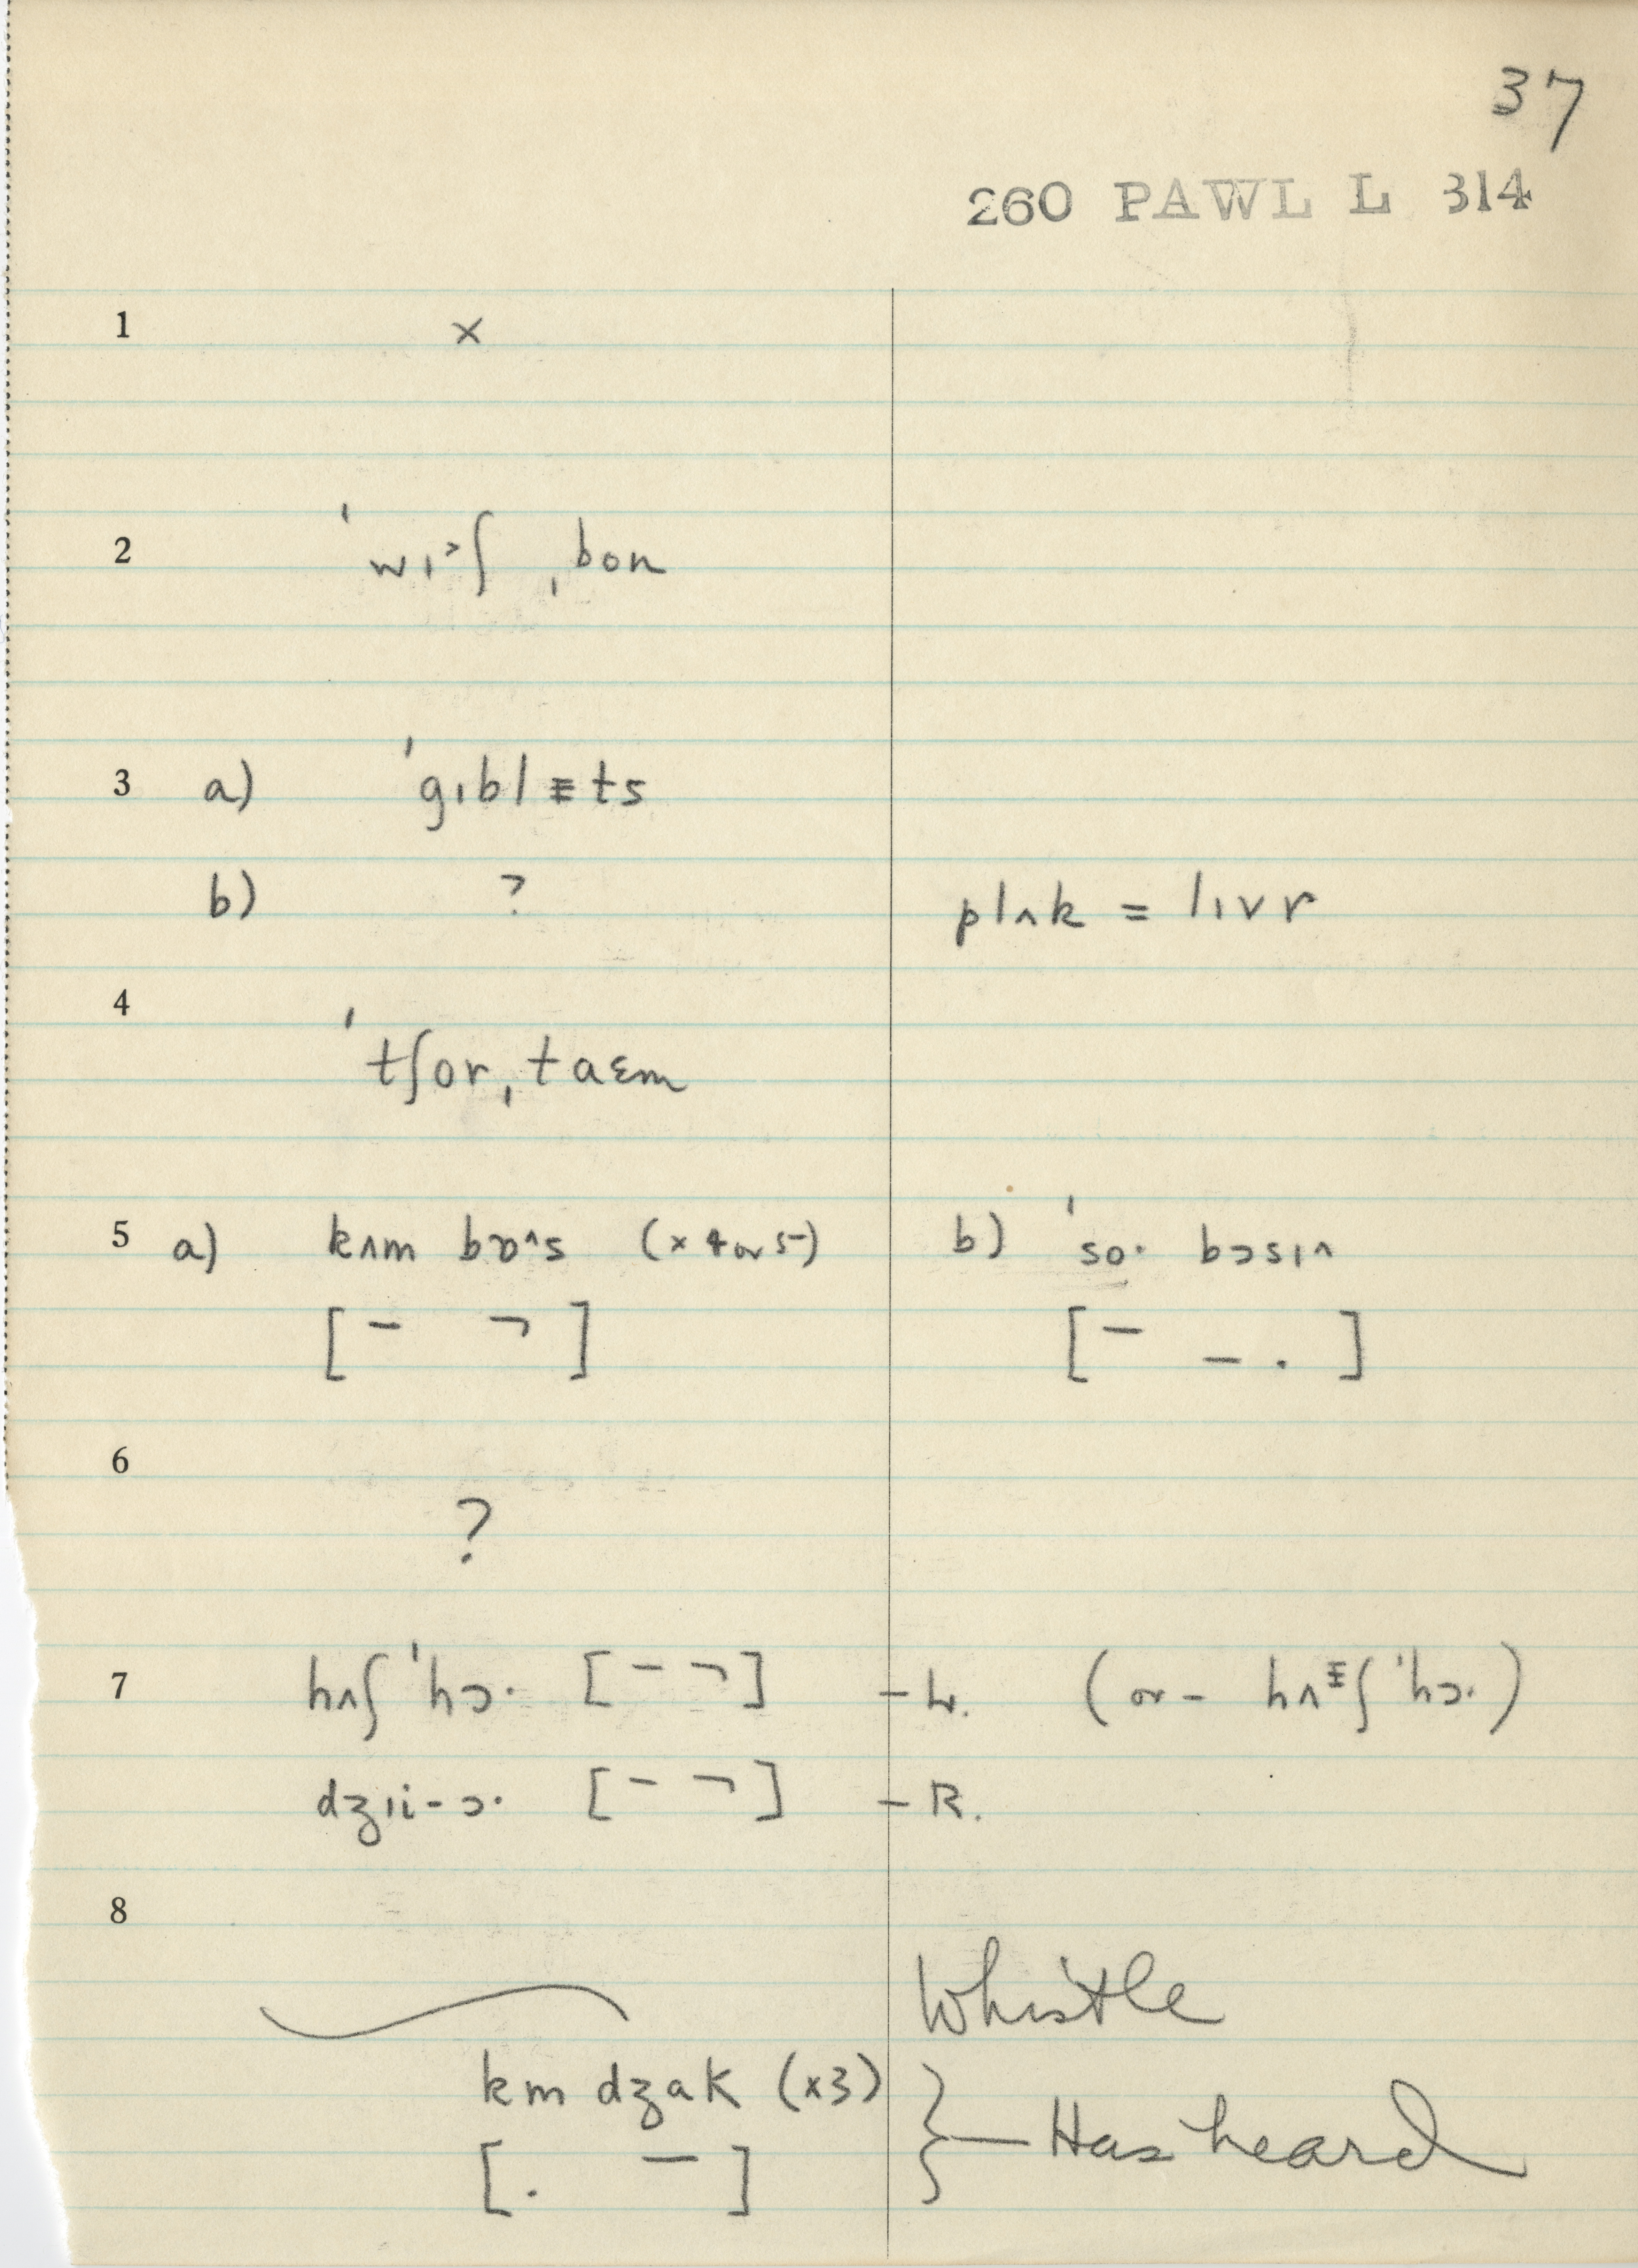 37
260 PAWL L 314
1 ×
2 ˈwɪ˃ʃ ˌbon
3 a) ˈgɪblᵻts
b) ? plʌk = lɪvr
4 ˈtʃorˌtaɛm
5 a) kʌm bɒ^s (× 4 or 5) b) ˈso· bɔsɪʌ
[ – ¬ ] [ – – . ]
6
?
7 hʌʃ ˈhɔ· [ – ¬ ] – L. (or – hʌᵻʃ ˈhɔ·)
dʒɪi-ɔ· [ – ¬ ] – R.
8
Whistle
km dʒak (×3) } — Has heard
[ . – ]